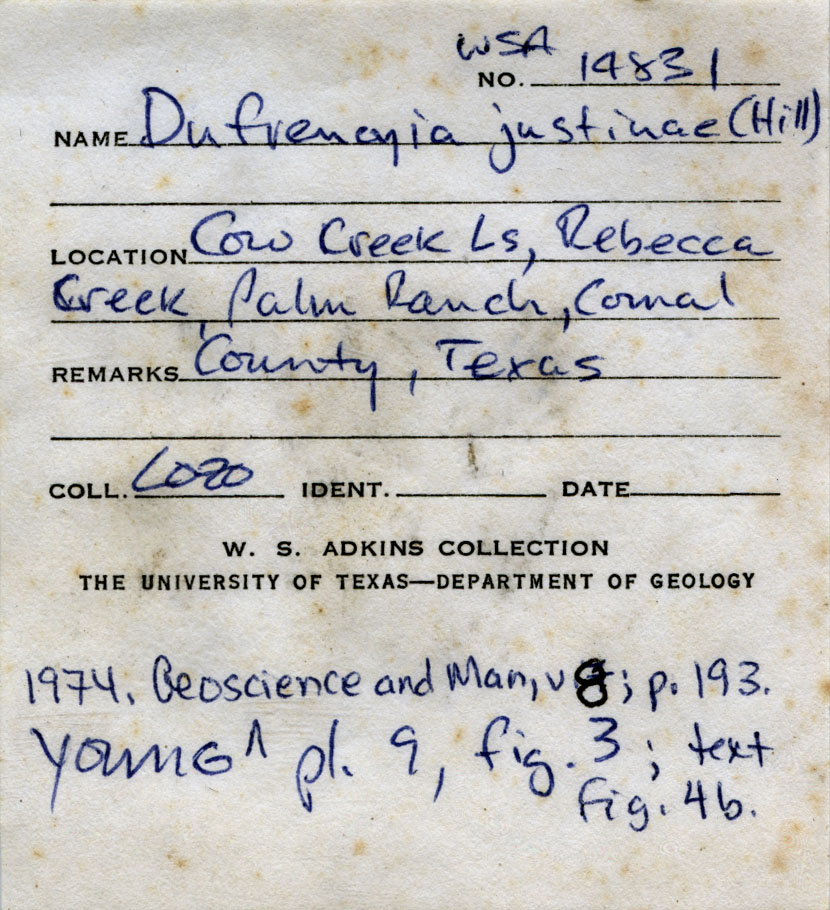 WSA
NO. 14831
NAME Dufrenoyia justinae (Hill)
LOCATION Cow Creek Ls, Rebecca
Creek, Palm Ranch, Comal
REMARKS County, Texas
COLL. Lozo IDENT. DATE
W. S. ADKINS COLLECTION
THE UNIVERSITY OF TEXAS—DEPARTMENT OF GEOLOGY
1974. Geoscience and Man, v 8; p. 193.
YOUNG ^ pl. 9, fig. 3; text
fig. 4b.